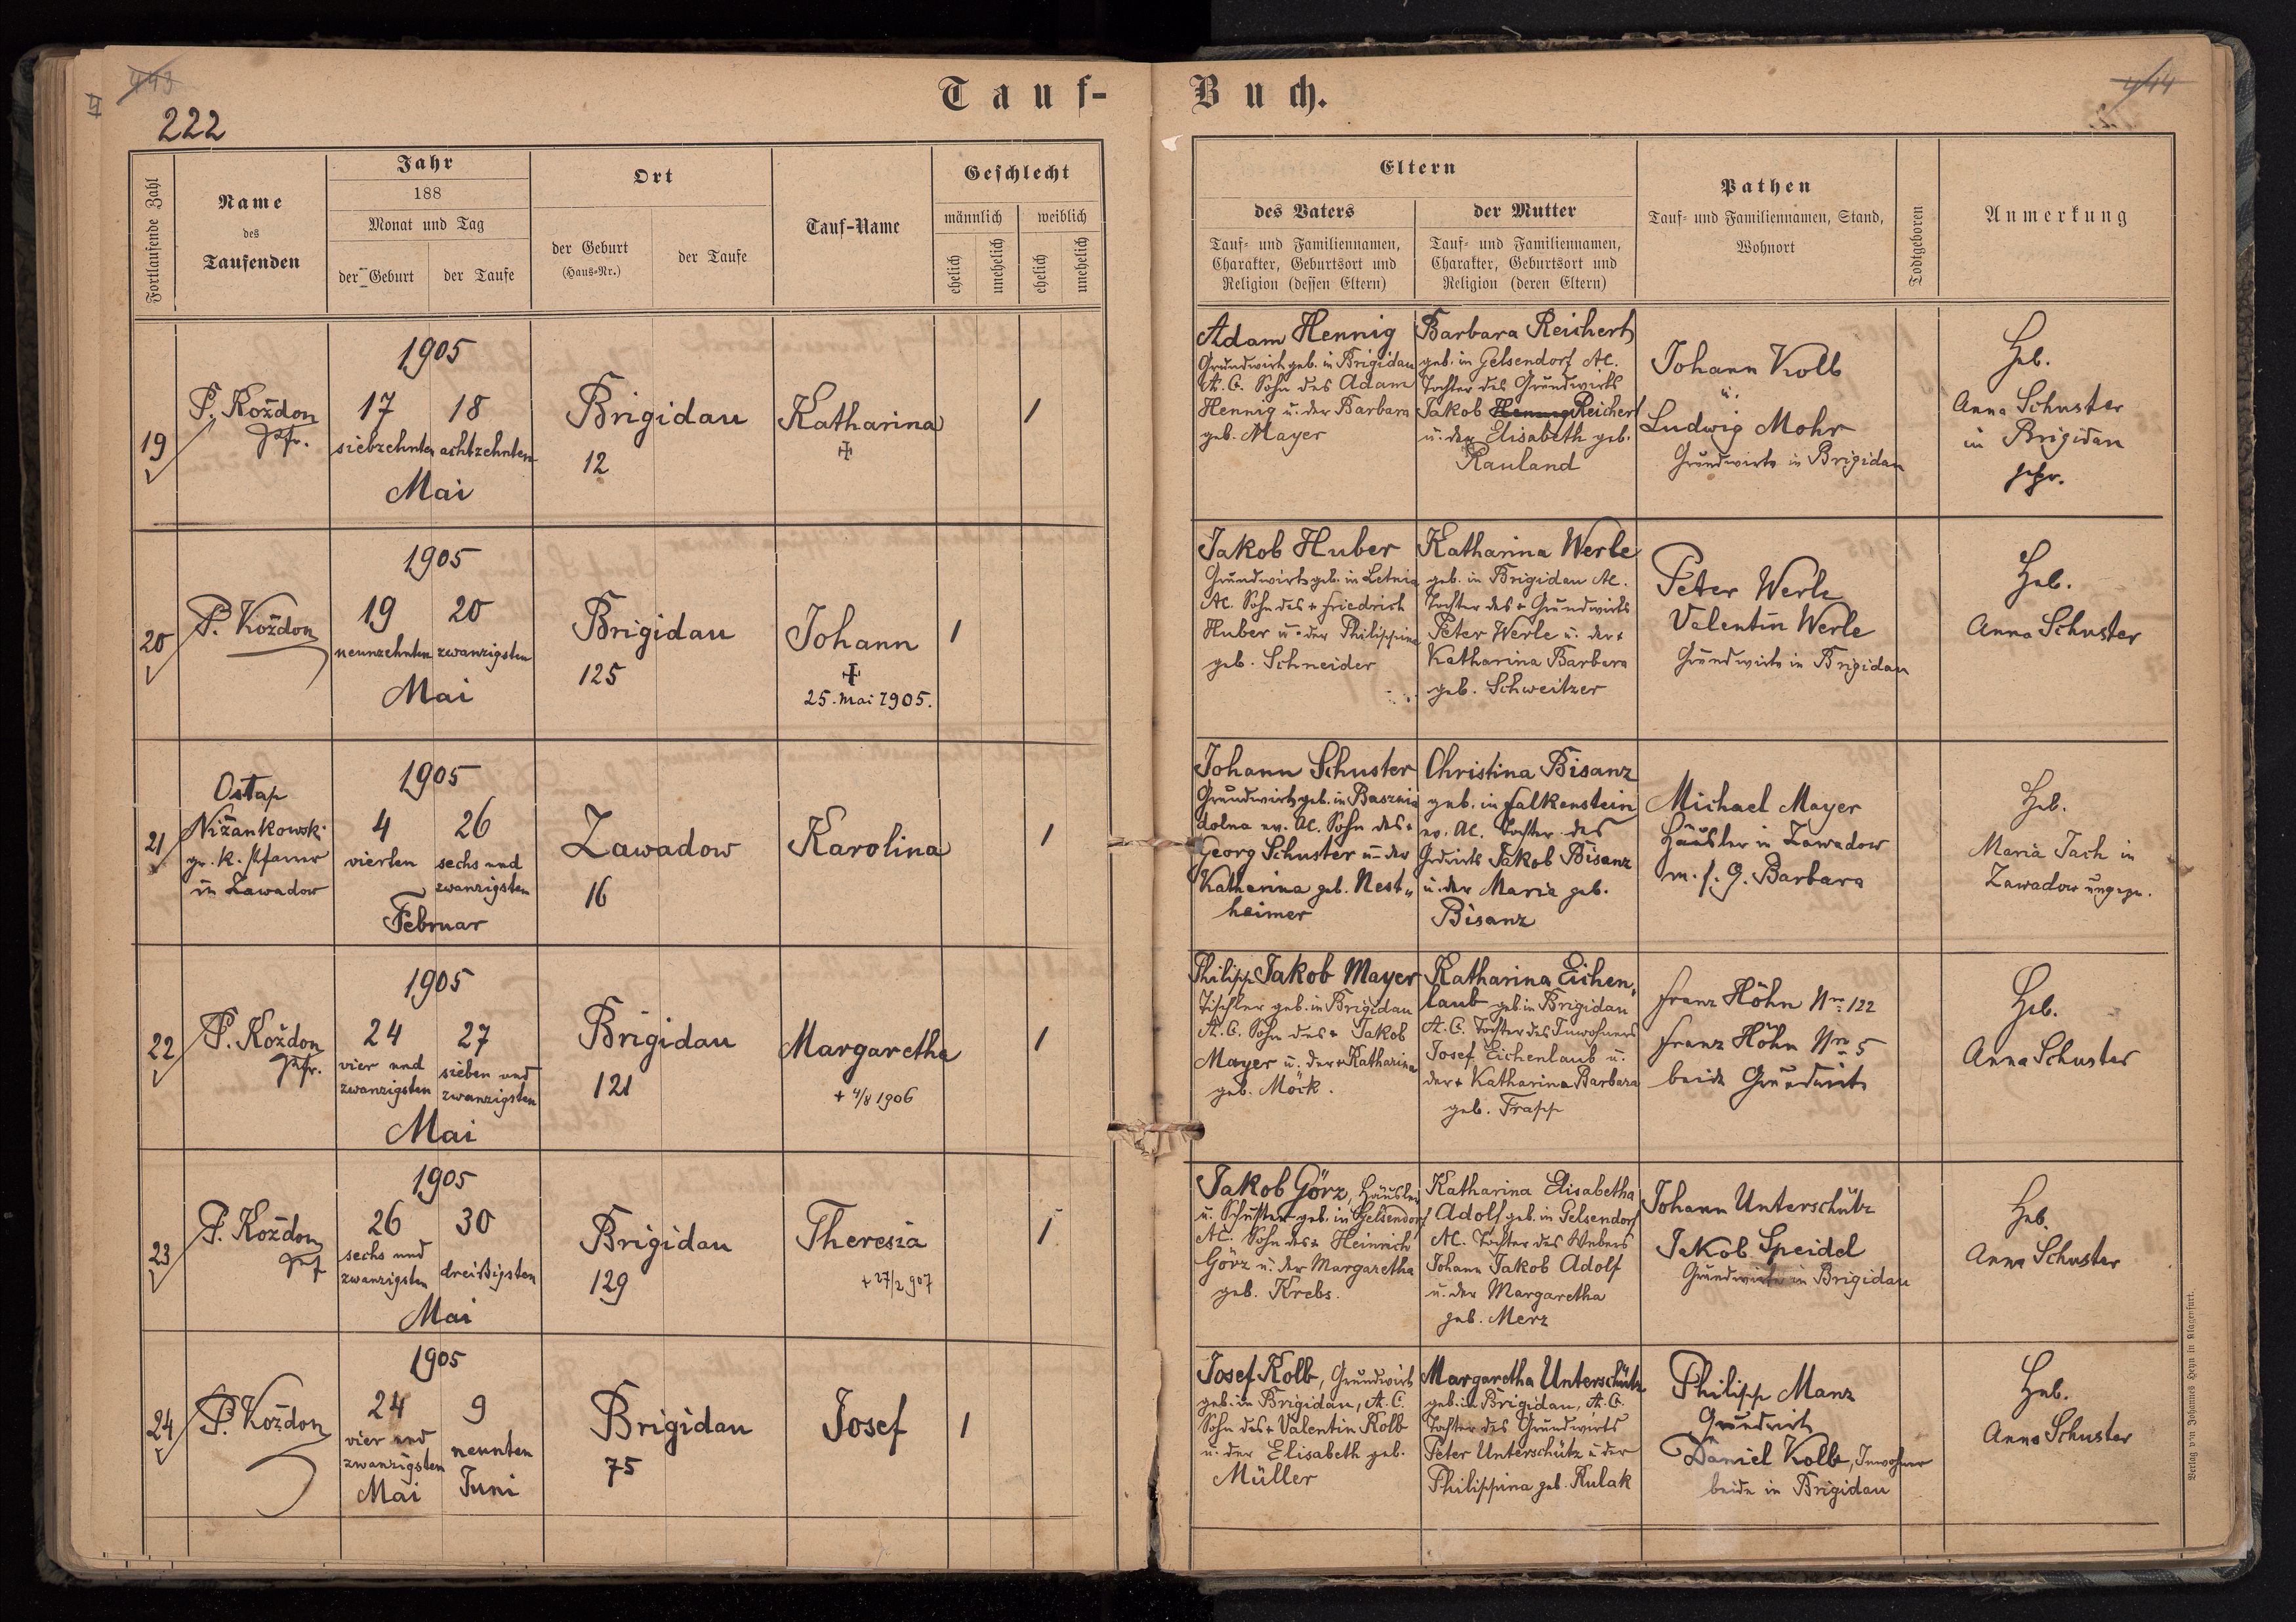 443
222
Tauf-
Fortlaufende Zahl
Name
des
Taufenden
Jahr
188
Monat und Tag
der Geburt
der Taufe
Ort
der Geburt
(Haus-Nr.)
der Taufe
Tauf-Name
Geschlecht
männlich
weiblich
ehelich
unehelich
ehelich
unehelich
19
P. Koždon
Pfr.
1905
17 18
siebzehnten achtzehnten
Mai
Brigidau
12
Katharina
+
1
20
P. Koždon
1905
19 20
neunzehnten zwanzigsten
Mai
Brigidau
125
Johann
+
25. Mai 1905.
1
21
Ostap
Nižankowski
gr. k. Pfarrer
in Zawadow
1905
4 26
vierten sechs und
zwanzigsten
Februar
Zawadow
16
Karolina
1
22
P. Koždon
Pfr.
1905
24 27
vier und sieben und
zwanzigsten zwanzigsten
Mai
Brigidau
121
Margaretha
+ 4/8 1906
1
23
P. Koždon
Pfr
1905
26 30
sechs und
zwanzigsten dreißigsten
Mai
Brigidau
129
Theresia
+ 27/2 907
1
24
P. Koždon
1905
24 9
vier und
zwanzigsten neunten
Mai Juni
Brigidau
75
Josef
1
Buch.
444
Eltern
des Vaters
Tauf- und Familiennamen,
Charakter, Geburtsort und
Religion (dessen Eltern)
der Mutter
Tauf- und Familiennamen,
Charakter, Geburtsort und
Religion (deren Eltern)
Pathen
Tauf- und Familiennamen, Stand,
Wohnort
Todtgeboren
Anmerkung
Adam Hennig
Grundwirt geb. in Brigidau
A. C. Sohn des Adam
Hennig u. der Barbara
geb. Mayer
Barbara Reichert
geb. in Gelsendorf AC.
Tochter des Grundwirts
Jakob Hennig Reichert
u. der Elisabeth geb.
Rauland
Johann Kolb
u.
Ludwig Mohr
Grundwirte in Brigidau
Heb.
Anna Schuster
in Brigidau
gepr.
Jakob Huber
Grundwirt geb. in Letnia
AC. Sohn des + Friedrich
Huber u. der Philippina
geb. Schneider
Katharina Werle
geb. in Brigidau AC.
Tochter des + Grundwirts
Peter Werle u. der +
Katharina Barbara
geb. Schweitzer
Peter Werle
Valentin Werle
Grundwirte in Brigidau
Heb.
Anna Schuster
Johann Schuster
Grundwirt geb. in Basznia
dolna ev. AC. Sohn des +
Georg Schuster u. der
Katharina geb. Nest„
heimer
Christina Bisanz
geb. in Falkenstein
ev. AC. Tochter des
Grdwirts Jakob Bisanz
u. der Maria geb.
Bisanz
Michael Mayer
Häusler in Zawadow
m. s. G. Barbara
Heb.
Maria Jach in
Zawadow ungepr.
Philipp Jakob Mayer
Tischler geb. in Brigidau
A. C. Sohn des + Jakob
Mayer u. der + Katharina
geb. Möck.
Katharina Eichen„
laub geb in Brigidau
A. C. Tochter des Inwohners
Josef Eichenlaub u.
der + Katharina Barbara
geb. Trapp
Franz Höhn Nro 122
Franz Höhn Nro 5
beide Grundwirte
Heb.
Anna Schuster
Jakob Görz, Häusler
u. Schuster geb. in Gelsendorf
AC. Sohn des + Heinrich
Görz u. der Margaretha
geb. Krebs.
Katharina Elisabetha
Adolf geb. in Gelsendorf
AC. Tochter des Webers
Johann Jakob Adolf
u. der Margaretha
geb. Merz
Johann Unterschütz
Jakob Speidel
Grundwirte in Brigidau
Heb.
Anna Schuster
Josef Kolb, Grundwirt
geb. in Brigidau, A. C.
Sohn des + Valentin Kolb
u. der Elisabeth geb.
Müller
Margaretha Unterschütz
geb. in Brigidau, A. C.
Tochter des Grundwirts
Peter Unterschütz u der
Philippina geb. Kulak
Philipp Manz
Grundwirt
Daniel Kolb, Inwohner
beide in Brigidau
Heb.
Anna Schuster
Verlag von Johannes Heyn in Klagenfurt.